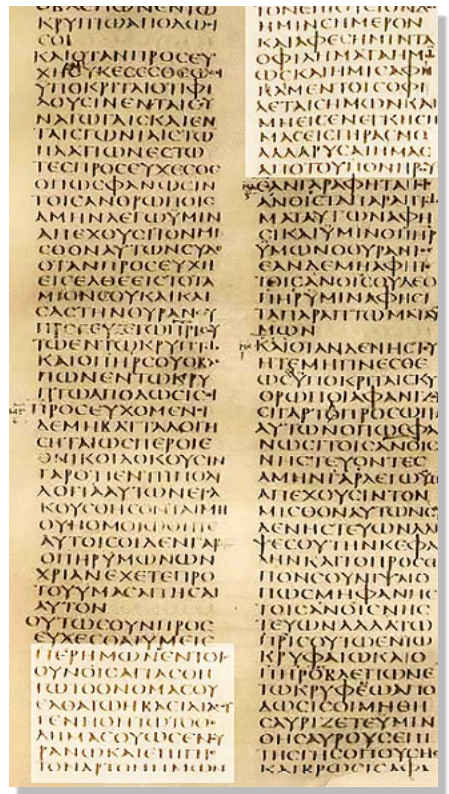 ΚΡΥΠΤΩΑΠΟΔΩCΙ
CΟΙ
ΚΑΙΟΤΑΝΠΡΟCΕΥ
ΧΗCΟΥΚΕCΕCΘΕΩC
ΥΠΟΚΡΙΤΑΙΟΤΙΦΙ
ΛΟΥCΙΝΕΝΤΑΙCΥ
ΝΑΓΩΓΑΙCΚΑΙΕΝ
ΤΑΙCΓΩΝΙΑΙCΤΩ
ΠΛΑΤΙΩΝΕCΤΩ
ΤΕCΠΡΟCΕΥΧΕCΘΕ
ΟΠΩCΦΑΝΩCΙΝ
ΤΟΙCΑΝΟΡΩΠΟΙC
ΑΜΗΝΛΕΓΩΥΜΙΝ
ΑΠΕΧΟΥCΙΤΟΝΜΙ
CΘΟΝΑΥΤΩΝCΥΔΕ
ΟΤΑΝΠΡΟCΕΥΧΗ
ΕΙCΕΛΘΕΕΙCΤΟΤΑ
ΜΙΟΝCΟΥΚΑΙΚΛΙ
CΑCΤΗΝΘΥΡΑΝCΥ
ΠΡΟCΕΥΞΕΤΩΠΡΙCΥ
ΤΩΕΝΤΩΚΡΥΠΤΩ
ΚΑΙΟΠΗΡCΟΥΟΒΛΕ
ΠΩΝΕΝΤΩΚΡΥ
ΠΤΩΑΠΟΔΩCΙCΙ
ΠΡΟCΕΥΧΟΜΕΝΟΙ
ΔΕΜΗΒΑΤΤΑΛΟΓΗ
CΗΤΑΙΩCΠΕΡΟΙΕ
ΘΝΙΚΟΙΔΟΚΟΥCΙΝ
ΓΑΡΟΤΙΕΝΤΗΠΟΛΥ
ΛΟΓΙΑΑΥΤΩΝΕΙCΑ
ΚΟΥCΘΗCΟΝΤΑΙΜΗ
ΟΥΝΟΜΟΙΩΘΗΤΕ
ΑΥΤΟΙCΟΙΔΕΝΓΑΡ
ΟΠΗΡΥΜΩΝΩΝ
ΧΡΙΑΝΕΧΕΤΕΠΡΟ
ΤΟΥΥΜΑCΑΙΤΗCΑΙ
ΑΥΤΟΝ
ΟΥΤΩCΟΥΝΠΡΟC
ΕΥΧΕCΘΑΙΥΜΕΙC
ΠΕΡΗΜΩΝΟΕΝΤΟΙC
ΟΥΝΟΙCΑΓΙΑCΘΗ
ΤΩΤΟΟΝΟΜΑCΟΥ
ΕΛΘΑΤΩΗΒΑCΙΛΙΑCΥ
ΓΕΝΗΘΗΤΩΤΟΘΕ
ΛΗΜΑCΟΥΩCΕΝΟΥ
ΡΑΝΩΚΑΙΕΠΙΓΗC
ΤΟΝΑΡΤΟΝΗΜΩΝ
ΗΜΙΝCΗΜΕΡΟΝ
ΚΑΙΑΦΕCΗΜΙΝΤΑ
ΟΦΙΛΗΜΑΤΑΗΜΩ
ΩCΚΑΙΗΜΙCΑΦΗ
ΚΑΜΕΝΤΟΙCΟΦΙ
ΛΕΤΑΙCΗΜΩΝΚΑΙ
ΜΗΕΙCΕΝΕΓΚΗCΗ
ΜΑCΕΙCΠΙΡΑCΜΟ
ΑΛΛΑΡΥCΑΙΗΜΑC
ΑΠΟΤΟΥΠΟΝΗΡΟΥ
ΕΑΝΓΑΡΑΦΗΤΑΙΤΙ
ΑΝΟΙCΤΑΠΑΡΑΠΤΩ
ΜΑΤΑΑΥΤΩΝΑΦΗ
CΙΚΑΙΥΜΙΝΟΠΗΡ
ΥΜΩΝΟΟΥΡΑΝΙΟC
ΕΑΝΔΕΜΗΑΦΗΤΕ
ΤΟΙCΑΝΟΙCΟΥΔΕΟ
ΠΗΡΥΜΙΝΑΦΗCΙ
ΤΑΠΑΡΑΠΤΩΜΑΤΑΥ
ΜΩΝ
ΚΑΙΟΤΑΝΔΕΝΗCΤΕΥ
ΗΤΕΜΗΓΙΝΕCΘΕ
ΩCΥΠΟΚΡΙΤΑΙCΚΥ
ΘΡΩΠΟΙΑΦΑΝΙΖΟΥ
CΙΓΑΡΤΟΠΡΟCΩΠΟ
ΑΥΤΩΝΟΠΩCΦΑ
ΝΩCΙΤΟΙCΑΝΟΙC
ΝΗCΤΕΥΟΝΤΕC
ΑΜΗΝΓΑΡΛΕΓΩΥΜΙ
ΑΠΕΧΟΥCΙΝΤΟΝ
ΜΙCΘΟΝΑΥΤΩΝCΥ
ΔΕΝΗCΤΕΥΩΝΑΛΙ
ΨΕCΟΥΤΗΝΚΕΦΑ
ΛΗΝΚΑΙΤΟΠΡΟCΩ
ΠΟΝCΟΥΝΙΨΑΙΟ
ΠΩCΜΗΦΑΝΗC
ΤΟΙCΑΝΟΙCΝΗC
ΤΕΥΩΝΑΛΛΑΤΩ
ΠΡΙCΟΥΤΩΕΝΤΩ
ΚΡΥΦΑΙΩΚΑΙΟ
ΠΗΡΟΒΛΕΠΩΝΕ
ΤΩΚΡΥΦΕΩΑΠΟ
ΔΩCΙCΟΙΜΗΘΗ
CΑΥΡΙΖΕΤΕΥΜΙΝ
ΘΗCΑΥΡΟΥCΕΠΙ
ΤΗCΓΗCΟΠΟΥCΗC
ΚΑΙΒΡΩCΙCΑΦΑ